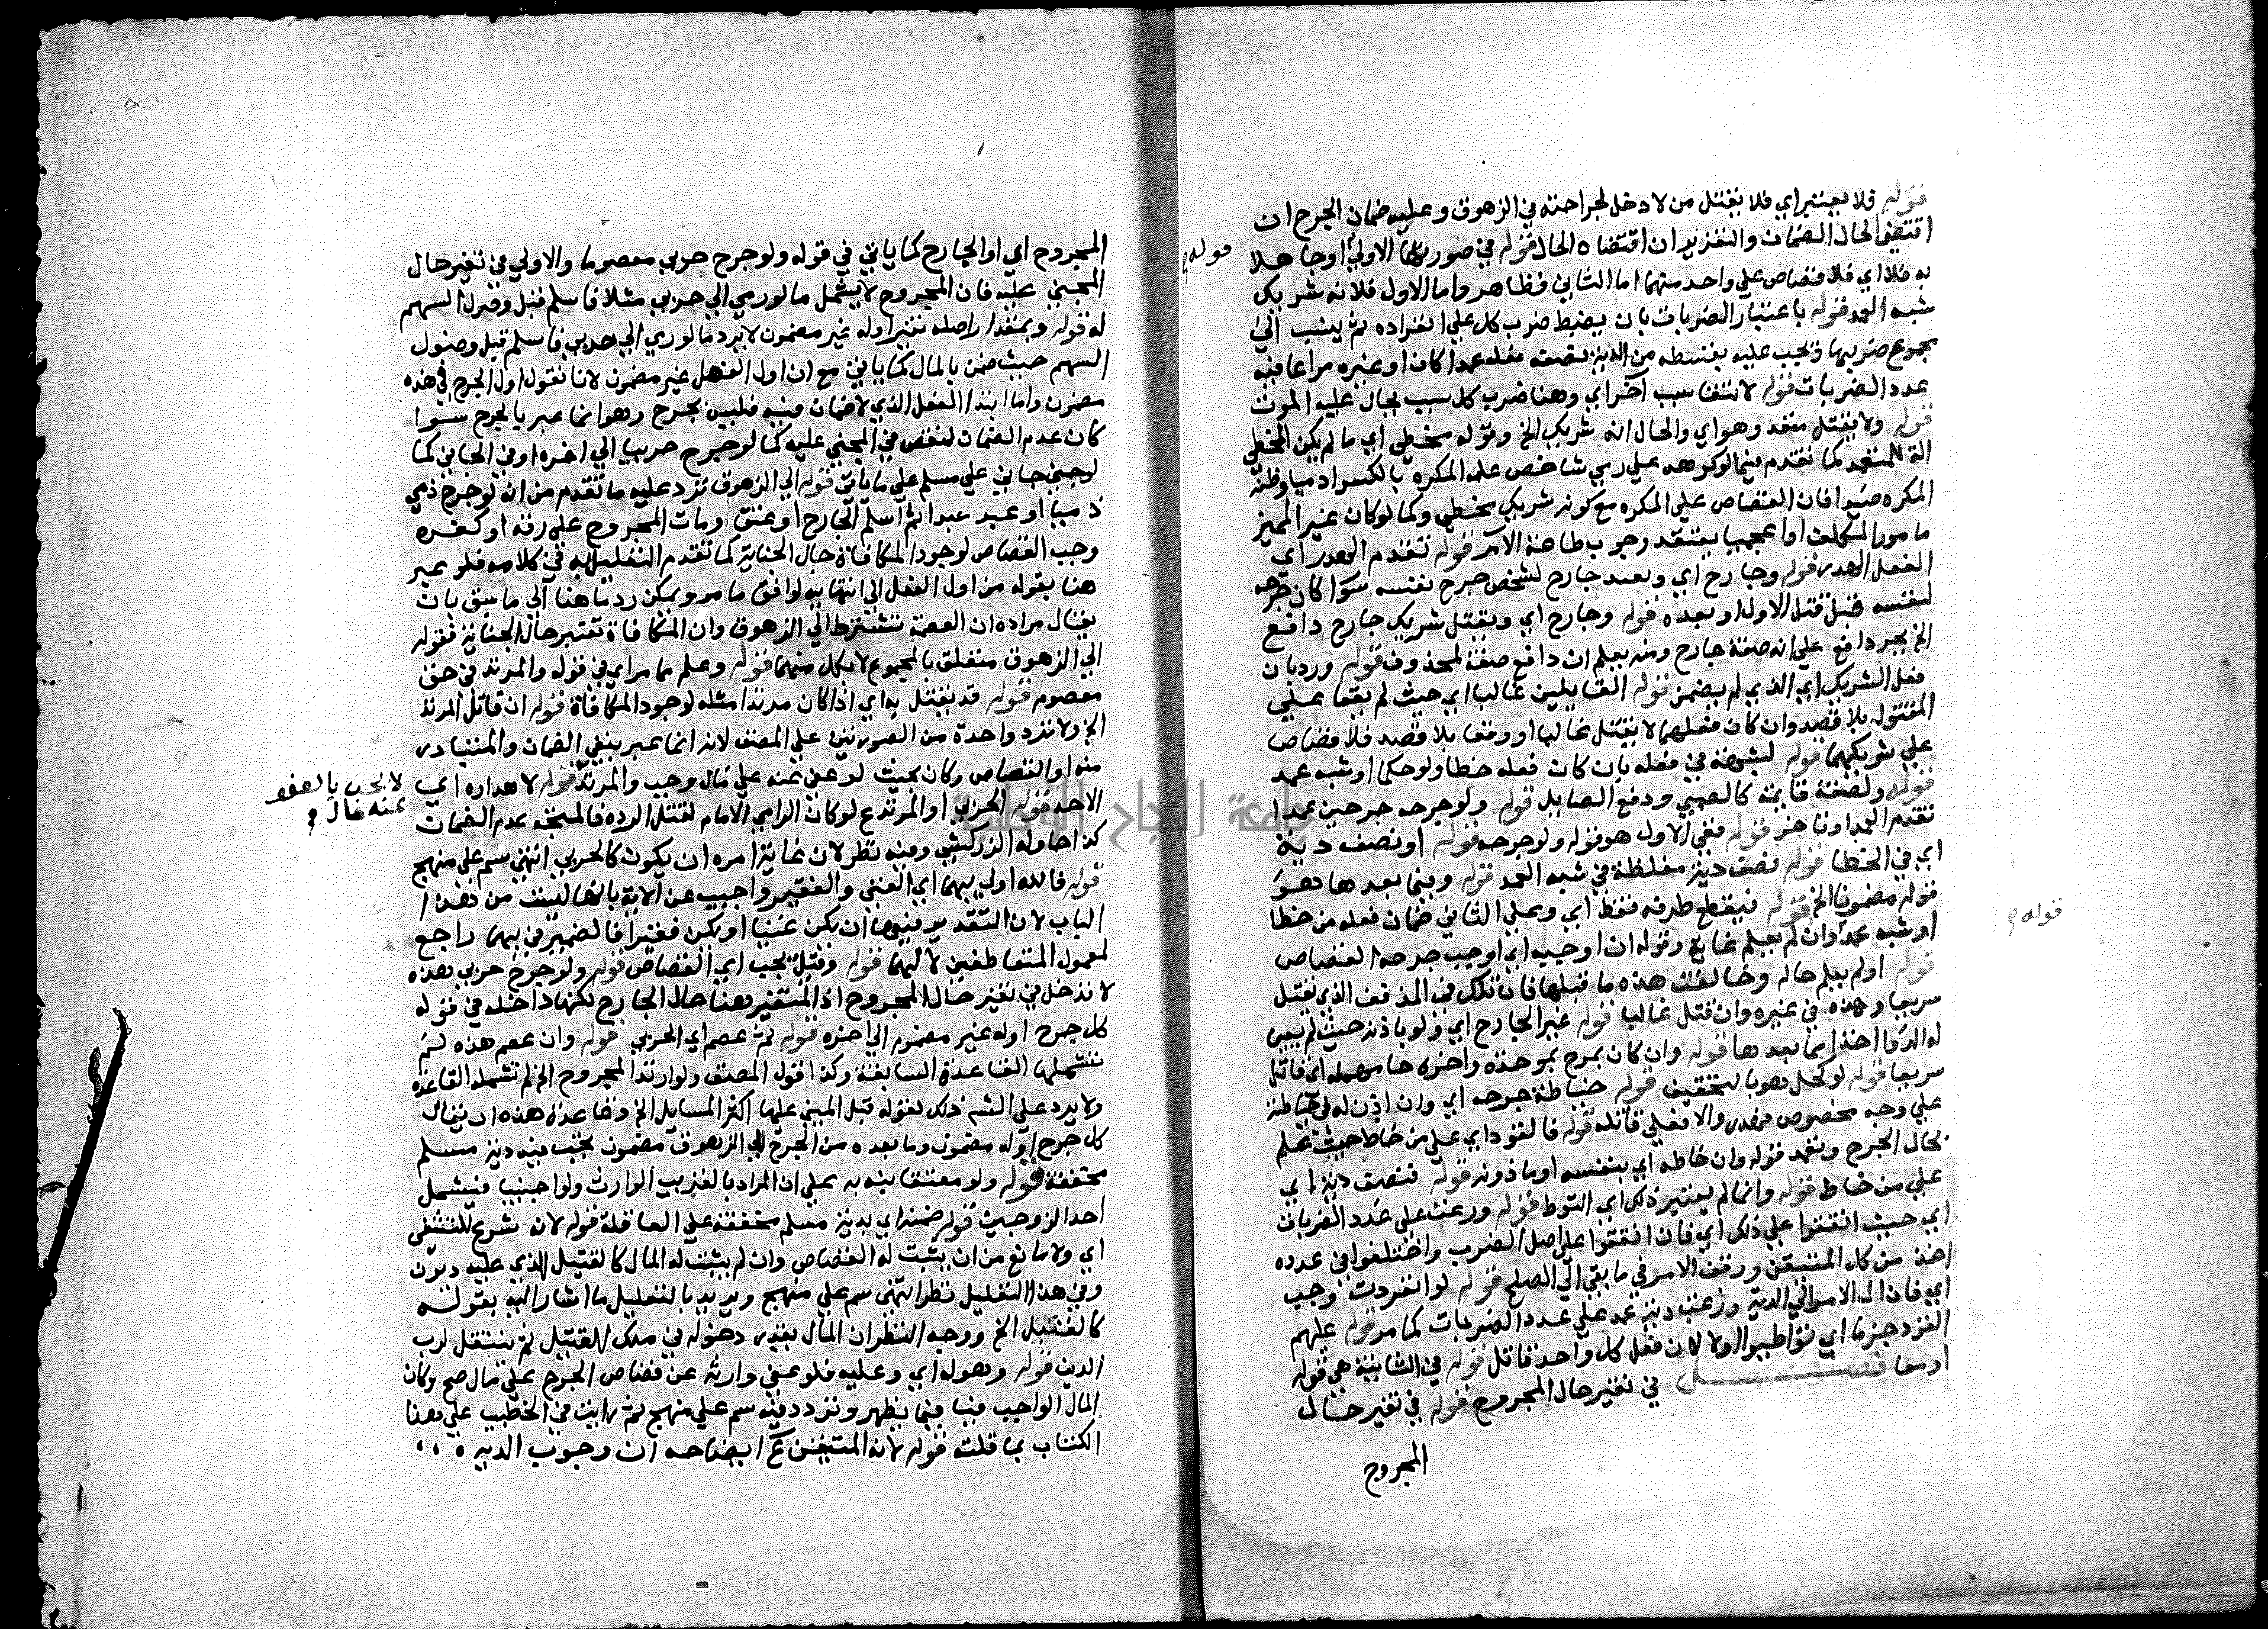 قوله فلا يعتبر اي فلا يقتل من لا دخل لجراحته في الزهوق وعليه ضمان الجرح ان
اقتضى الحال الضمان والتعزير ان اقتضاه الحال قوله في صورتها الاولى اوجاهلا
به فلا اي فلا قصاص على واحد منهما اما الثاني فظاهر واما الاول فلانه شريك
شبه العمد قوله باعتبار الضربات بان يضبط ضرب كل على انفراده ثم ينسب الى
مجموع ضربهما ويجب عليه بقسطه من الدية بصفة فعله عمدا كان او غيره مراعا فيه
عدد الضربات قوله سبب آخر اي وهنا ضرب كل سبب يحال عليه الموت
قوله ولا يقتل متعمد وهو اي والحال انه شريك الخ وقوله مخطئ اي ما لم يكن المخطئ
الة للمتعمد كما تقدم فيما لو اكره على رمي شاخص علم المكره بالكسر ادميا وظنه
المكره صيدا فان القصاص على المكره مع كونه شريك مخطئ وكما لو كان غير المميز
مامورا لمكلف او اعجميا يعتقد وجوب طاعة الآمر قوله تقدم الهدر اي
الفعل الهدر قوله وجارح اي وبعد جارح لشخص جرح نفسه سوا كان جرحه
لنفسه قبل قتل الاول او بعده قوله وجارح اي ويقتل شريك جارح دافع
الخ بجر دافع على انه صفة جارح ومنه يعلم ان دافع صفة لمحذوف قوله وردبان
فعل الشريك اي الذي لم يضمن قوله القاتلين غالبا اي حيث لم يقعا على
المقتول بلا قصد وان كان فعلهما لا يقتل غالبا او وقعا بلا قصد فلا قصاص
على شريكهما قوله لشبهة في فعله بان كان فعله خطا ولو حكما او شبه عمد
قوله ولصفة قائمة كالصبي ودفع الصايل قوله ولو جرحه جرحين عمدا
تقدم العمد او تاخر قوله ففي الاول هو قوله ولو جرحه قوله او نصف دية
اي في الخطا قوله نصف دية مغلظة في شبه العمد قوله وفيما بعدها وهو
قوله مضمونا الخ قوله فيقطع طرفه فقط اي وعلى الثاني ضمان فعله من خطا
او شبه عمد وان لم يعلم وقوله ان اوجبه اي اوجب جرحه القصاص
قوله اولم يعلم حاله وخالفت هذه ما قبلها فان تلك في المذفف الذي يقتل
سريعا وهذه في غيره وان قتل غالبا قوله غير الجارح اي ولو باذنه حيث لم يبين
له الدوا اخذا مما بعدها قوله وان كان بمرح بموحدة واخره حا مهملة اي قاتل
سريعا قوله لو كحل وهو بالتخفيف قوله خياطة جرحه اي وان اذن له في خياطته
على وجه مخصوص فهدر والا فعلى قاتله قوله فالقود اي على من خاط حيث علم
بحال الجرح وتعمد قوله وان خاطه اي بنفسه او ماذونه قوله فنصف دية اي
على من خاط قوله وانما لم يعتبر ذلك اي التوط قوله وزعت على عدد الضربات
اي حيث اتفقوا على ذلك اي فان اتفقوا على اصل الضرب واختلفوا في عدده
اخذ من كل المتيقن ووقف الامر في ما بقي الى الصلح قوله لو انفردت وجب
اي فان ال الامر الى الدية وزعت دية عمد على عدد الضربات كما مر قوله عليهم
القود جزما اي تواطئوا اولا لان فعل كل واحد قاتل قوله في الثانية هي قوله
اومعا فصل في تغير حال المجروح قوله في تغير حال
المجروح
قوله
قوله
المجروح اي او الجارح كما ياتي في قوله ولو جرح حربي معصوما والاولى في تغير حال
المجني عليه فان المجروح لا يشمل ما لو رمي الى حربي مثلا فاسلم قبل وصول السهم
له قوله وبمقدار اصله تغير اوله غير مضمون لا يرد ما لو رمي الى حربي فاسلم قبل وصول
السهم حيث ضمن بالمال كما ياتي مع ان اول الفعل غير مضمون لانا نقول اول الجرح في هذه
مضمون واما ابتدا الفعل الذي لا ضمان فيه فليس بجرح وهو انما عبر بالجرح سوا
كان عدم الضمان لنقص في المجني عليه كما لو جرح حربيا الى اخره او في الجاني كما
لو جنى حربي على مسلم على ما ياتي قوله الى الزهوق ترد عليه ما تقدم من انه لو جرح ذمي
ذميا او عبد عبدا ثم اسلم الجارح او عتق ومات المجروح على رقه او كفره
وجب القصاص لوجود المكافاة حال الجناية كما تقدم التعليل به في كلامه فلو عبر
هنا بقوله من اول الفعل الى انتهايه لوافق ما مر ويمكن رد ما هنا الى ما سبق بان
يقال مراده ان العصمة تشترط الى الزهوق وان المكافاة تعتبر حال الجناية فقوله
الى الزهوق متعلق بالمجموع لا بكل منهما قوله وعلم مما مر اي في قوله والمرتد في حق
معصوم قوله قد يقتل به اي اذا كان مرتدا مثله لوجود المكافاة قوله ان قاتل المرتد
الخ ولا ترد واحدة من الصورتين على المصنف لانه انما عبر بنفي الضمان والمتبادر
منه او القصاص وكان بحيث لو عفي عنه على مال وجب والمرتد قوله لاهداره اي
لا يجب بالعفو
عنه مال
الاحد قوله الحربي او المرتد ع لو كان الرامي الامام لقتل الردة فالمتجه عدم الضمان
كذا حاوله الزركشي وفيه نظر لان غاية امره ان يكون كالحربي انتهى سم على منهج
قوله فالله اولى بهما اي الغني والفقير واجيب عن الآية بانها ليست من هذا
الباب لان التقدير فيها ان يكن غنيا او يكن فقيرا فالضمير في بهما راجع
لمعمول المتعاطفين لا لهما قوله وقيل يجب اي القصاص قوله ولو جرح حربي بهذه
لا تدخل في تغير حال المجروح اذ المتغير هنا حال الجارح لكنها داخلة في قوله
كل جرح اوله غير مضمون الى اخره قوله ثم عصم اي الحربي قوله وان عصم هذه لم
تشملها القاعدة السابقة وكذا قول المصنف ولو ارتد المجروح الخ لم تشمله القاعدة
ولا يرد على الشم ذلك لقوله قبل المبني عليها اكثر المسايل الخ وقاعدة هذه ان يقال
كل جرح اوله مضمون وما بعده من الجرح الى الزهوق مضمون يجب فيه دية مسلم
مخففة قوله ولو معتقا بينه به على ان المراد بالقريب الوارث ولو اجنبيا فيشمل
احد الزوجين قوله ضمنه اي بدية مسلم مخففة على العاقلة قوله لانه شرع للتشفي
اي ولا مانع من ان يثبت له القصاص وان لم يثبت له المال كالقتيل الذي عليه ديون
وفي هذا التعليل نظر انتهى سم على منهج ويريد بالتعليل ما اشار اليه بقوله
كالقتيل الخ ووجه النظر ان المال يقدر دخوله في ملك القتيل ثم ينتقل لرب
الدين قوله وهو له اي وعليه فلو عفى وارثه عن قصاص الجرح على مال صح وكان
المال الواجب فيا فيما يظهر وتردد فيه سم على منهج ثم رايت في الخطيب على هذا
الكتاب بما قلت قوله لانه المتيقن كم ايضاحه ان وجوب الديه